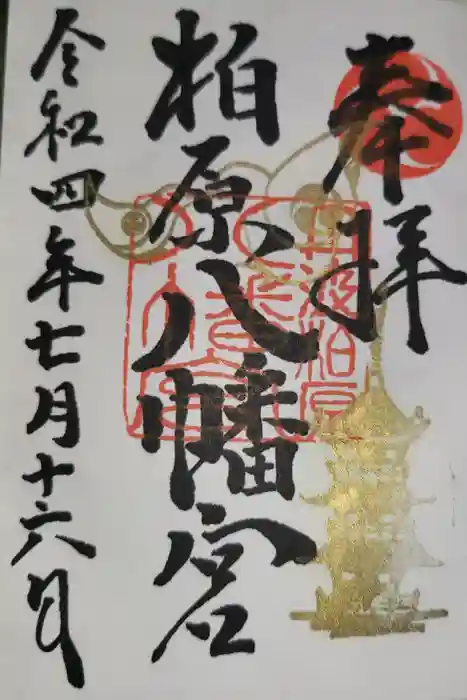 奉拝
柏原八幡宮
令和四年七月十六日
丹波柏原